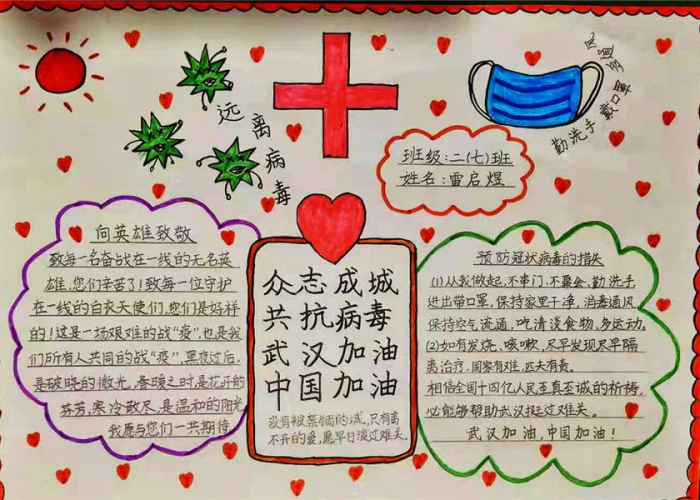 远离病毒
勤洗手 戴口罩
多通风
班级:二(七)班
姓名:雷启煜
向英雄致敬
致每一名奋战在一线的无名英
雄,您们辛苦了!致每一位守护
在一线的白衣天使们,您们是好样
的!这是一场艰难的战“疫”,也是我
们所有人共同的战“疫”,黑夜过后,
是破晓的微光,春暖之时,是花开的
芬芳,寒冷散尽,是温和的阳光
我愿与您们一共期待
众志成城
共抗病毒
武汉加油
中国加油
没有被禁锢的城,只有离
不开的爱,愿早日渡过难关。
预防冠状病毒的措失
(1)从我做起,不串门,不聚会,勤洗手
进出带口罩,保持家里干净,消毒通风
保持空气流通,吃清淡食物,多运动。
(2)如有发烧、咳嗽,尽早发现尽早隔
离治疗,国家有难,匹夫有责。
相信全国十四亿人民至真至诚的祈祷,
必能够帮助武汉挺过难关。
武汉加油,中国加油!